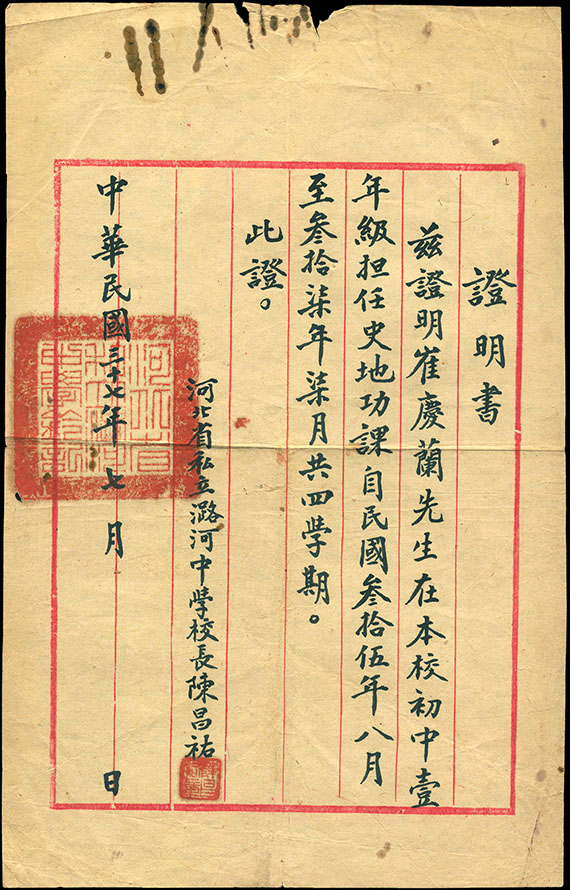 證明書
兹證明崔慶蘭先生在本校初中壹
年級担任史地功課自民國叁拾伍年八月
至叁拾柒年柒月共四學期。
此證。
河北省私立潞河中學校長陳昌祐
中華民國三十七年七月 日